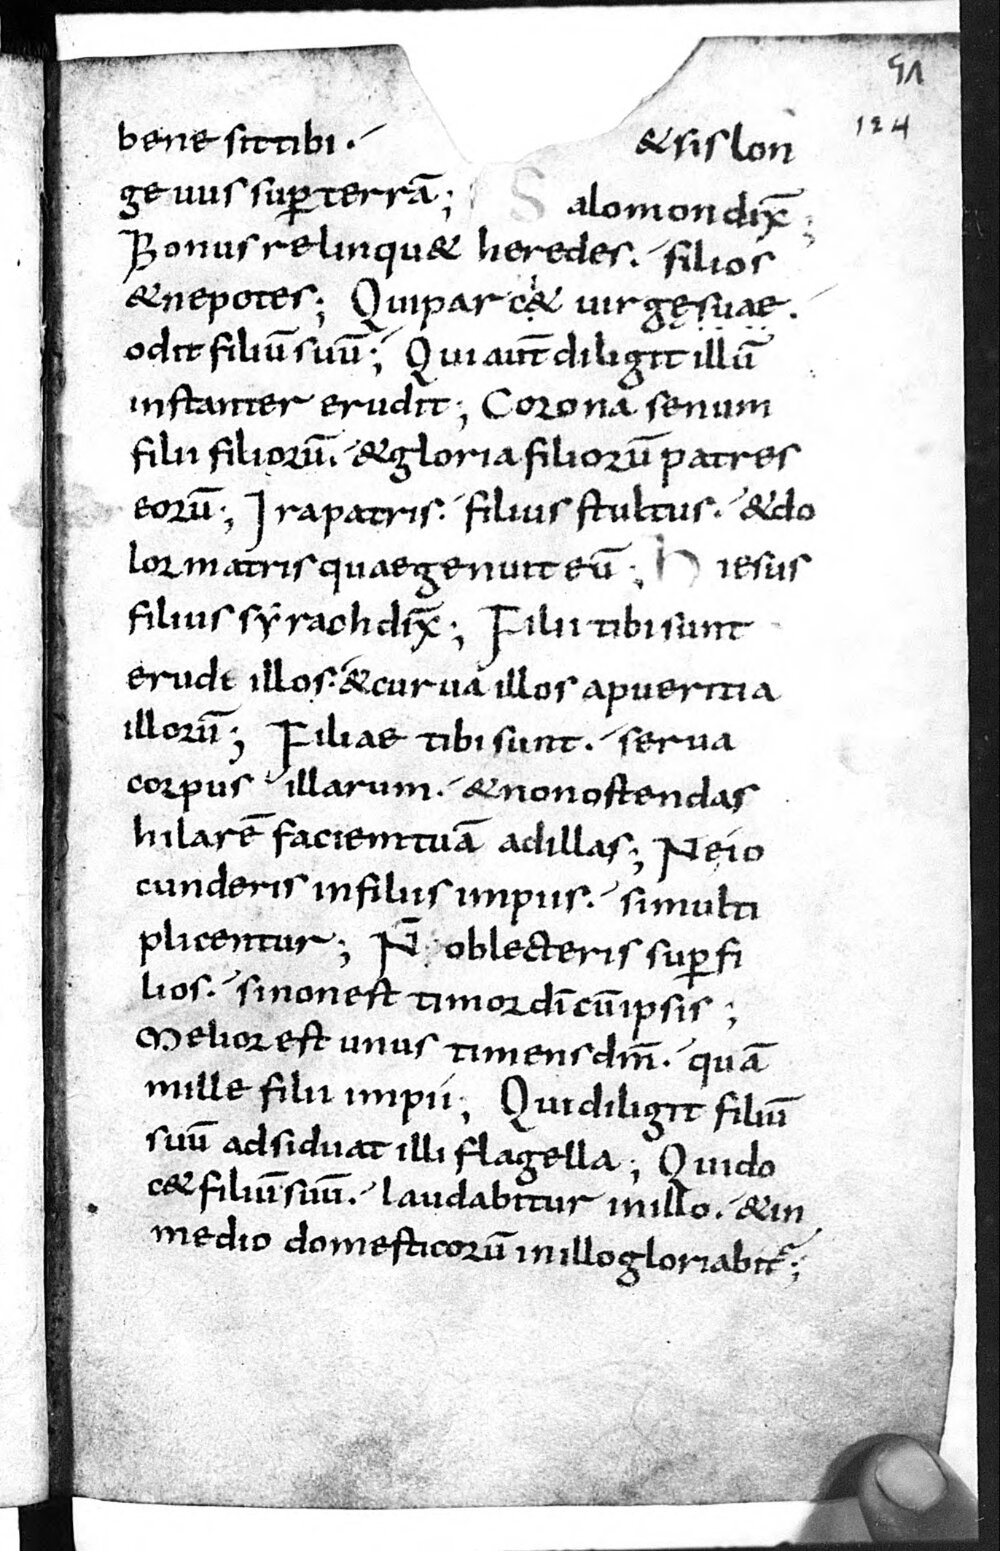 51
124
bene sit tibi . & sis lon
ge uus sup terrā ; Salomon dix̄ ;
Bonus relinqu& heredes . filios
& nepotes ; Qui parc& uirgę suae .
odit filiū suū ; Qui aut̄ diligit illū
instanter erudit ; Corona senum
filii filiorū . & gloria filiorū patres
eorū ; Ira patris . filius stultus . & do
lor matris quae genuit eū ; Hiesus
filius syrach dix̄ ; Filii tibi sunt
erudi illos . & curua illos a pueritia
illorū ; Filiae tibi sunt . serua
corpus illarum . & non ostendas
hilarē faciem tuā ad illas ; Ne io
cunderis in filiis impiis . si multi
plicentur ; N̄ oblecteris sup fi
lios . si non est timor dī cū ipsis ;
Melior est unus timens dm̄ . quā
mille filii impii ; Qui diligit filiū
suū adsiduat illi flagella ; Qui do
c& filiū suū . laudabitur in illo . & in
medio domesticorū in illo gloriabit ;